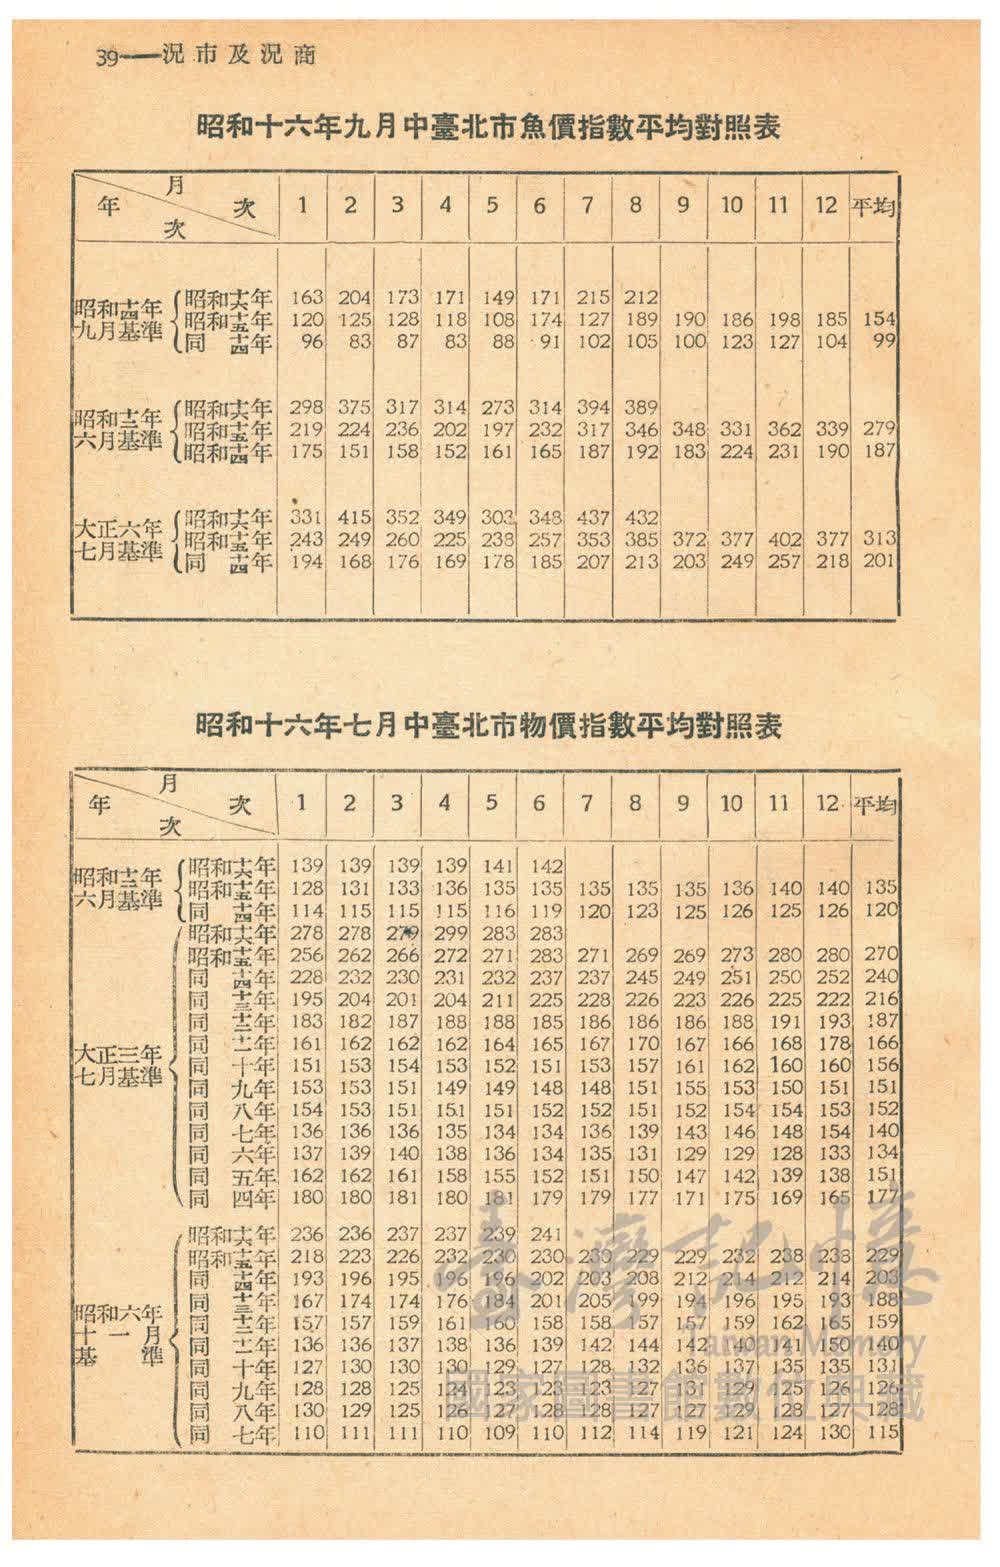 39—況市及況商
昭和十六年九月中臺北市魚價指數平均對照表
年次 月次 1 2 3 4 5 6 7 8 9 10 11 12 平均
昭和十四年九月基準
昭和十六年 163 204 173 171 149 171 215 212
昭和十五年 120 125 128 118 108 174 127 189 190 186 198 185 154
同 十四年 96 83 87 83 88 91 102 105 100 123 127 104 99
昭和十二年六月基準
昭和十六年 298 375 317 314 273 314 394 389
昭和十五年 219 224 236 202 197 232 317 346 348 331 362 339 279
昭和十四年 175 151 158 152 161 165 187 192 183 224 231 190 187
大正六年七月基準
昭和十六年 331 415 352 349 303 348 437 432
昭和十五年 243 249 260 225 238 257 353 385 372 377 402 377 313
同 十四年 194 168 176 169 178 185 207 213 203 249 257 218 201
昭和十六年七月中臺北市物價指數平均對照表
年次 月次 1 2 3 4 5 6 7 8 9 10 11 12 平均
昭和十二年六月基準
昭和十六年 139 139 139 139 141 142
昭和十五年 128 131 133 136 135 135 135 135 135 136 140 140 135
同 十四年 114 115 115 115 116 119 120 123 125 126 125 126 120
大正三年七月基準
昭和十六年 278 278 279 299 283 283
昭和十五年 256 262 266 272 271 283 271 269 269 273 280 280 270
同 十四年 228 232 230 231 232 237 237 245 249 251 250 252 240
同 十三年 195 204 201 204 211 225 228 226 223 226 225 222 216
同 十二年 183 182 187 188 188 185 186 186 186 188 191 193 187
同 十一年 161 162 162 162 164 165 167 170 167 166 168 178 166
同 十年 151 153 154 153 152 151 153 157 161 162 160 160 156
同 九年 153 153 151 149 149 148 148 151 155 153 150 151 151
同 八年 154 153 151 151 151 152 152 151 152 154 154 153 152
同 七年 136 136 136 135 134 134 136 139 143 146 148 154 140
同 六年 137 139 140 138 136 134 135 131 129 129 128 133 134
同 五年 162 162 161 158 155 152 151 150 147 142 139 138 151
同 四年 180 180 181 180 181 179 179 177 171 175 169 165 177
昭和六年十一月基準
昭和十六年 236 236 237 237 239 241
昭和十五年 218 223 226 232 230 230 230 229 229 232 238 238 229
同 十四年 193 196 195 196 196 202 203 208 212 214 212 214 203
同 十三年 167 174 174 176 184 201 205 199 194 196 195 193 188
同 十二年 157 157 159 161 160 158 158 157 157 159 162 165 159
同 十一年 136 136 137 138 136 139 142 144 142 140 141 150 140
同 十年 127 130 130 130 129 127 128 132 136 137 135 135 131
同 九年 128 128 125 124 123 123 123 127 131 129 125 126 126
同 八年 130 129 125 126 127 128 128 127 127 129 128 127 128
同 七年 110 111 111 110 109 110 112 114 119 121 124 130 115
臺灣記憶
Taiwan Memory
國家圖書館數位典藏